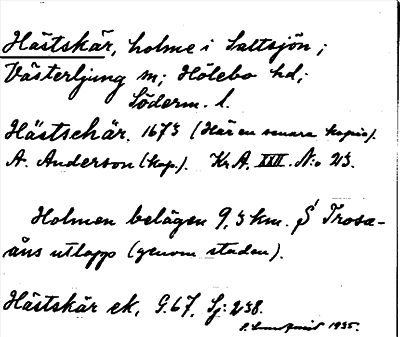 Hästskär, holme i Saltsjön;
Västerljung sn; Hölebo hd;
Söderm. l.
Hästschär. 1673 (Här en senare kopia).
A. Anderson (kop.). Kr.A. XXII. N:o 213.
Holmen belägen 9,3 km. S Trosa-
åns utlopp (genom staden).
Hästskär ek, G.67, Sj: 238.
1935.